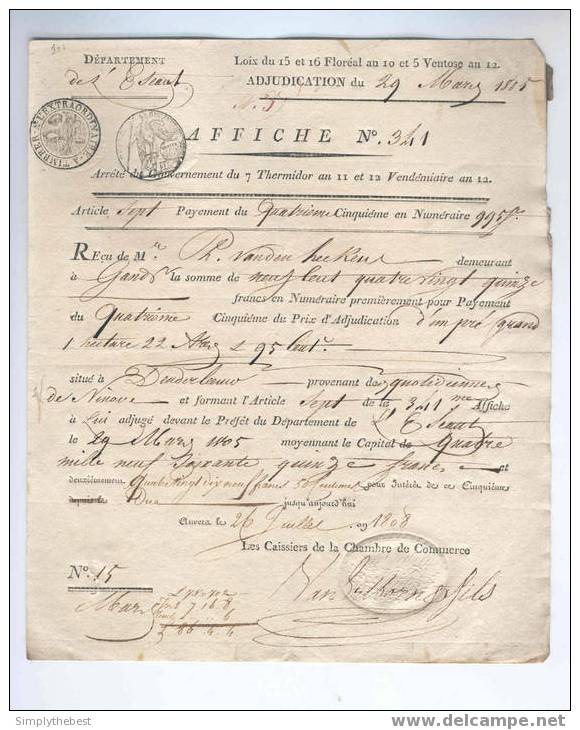 Département
de l'Escaut
Loix du 15 et 16 Floréal an 10 et 5 Ventose an 12.
ADJUDICATION du 29 Mars 1805
TIMBRE A L'EXTRAORDINAIRE
AFFICHE N°. 341
Arrêté du Gouvernement du 7 Thermidor an 11 et 12 Vendémiaire an 12.
Article Sept Payement du Quatrieme Cinquiéme en Numéraire 995 fr
REçu de Mr. Ph. Vanden hecken demeurant
à Gand la somme de neuf Cent quatre vingt quinze
francs en Numéraire premièrement pour Payement
du Quatrième Cinquiéme du Prix d'Adjudication d'un pré grand
1 hectare 22 Ares 95 Cent.
situé à Denderleeuw provenant de quotidiennes
de Ninove et formant l'Article Sept de la 341me Affiche
à Lui adjugé devant le Préfét du Département de L'Escaut
le 29 Mars 1805 moyennant le Capital de Quatre
mille neuf Soixante quinze francs et
deuxièmement quatre Vingt dix neuf francs 50 Centimes pour Intérêts de ce Cinquiéme
depuis le Due jusqu'aujourd'hui
Anvers le 26 Juillet an 1808
Les Caissiers de la Chambre de Commerce
N°. 15
Van Ertborn & fils
Mars
7 16 8
86 4 4
Simplythebest
delcampe.net